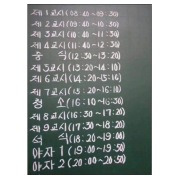 제1교시(08:40~09:30)
제2교시(09:40~10:30)
제3교시(10:40~11:30)
제4교시(11:40~12:30)
중 식(12:30~13:20)
제5교시(13:20~14:10)
제6교시(14:20~15:10)
제7교시(15:20~16:10)
청 소(16:10~16:30)
제8교시(16:30~17:20)
제9교시(17:30~18:20)
석 식(18:20~19:00)
야자 1 (19:00~19:50)
야자 2 (20:00~20:50)